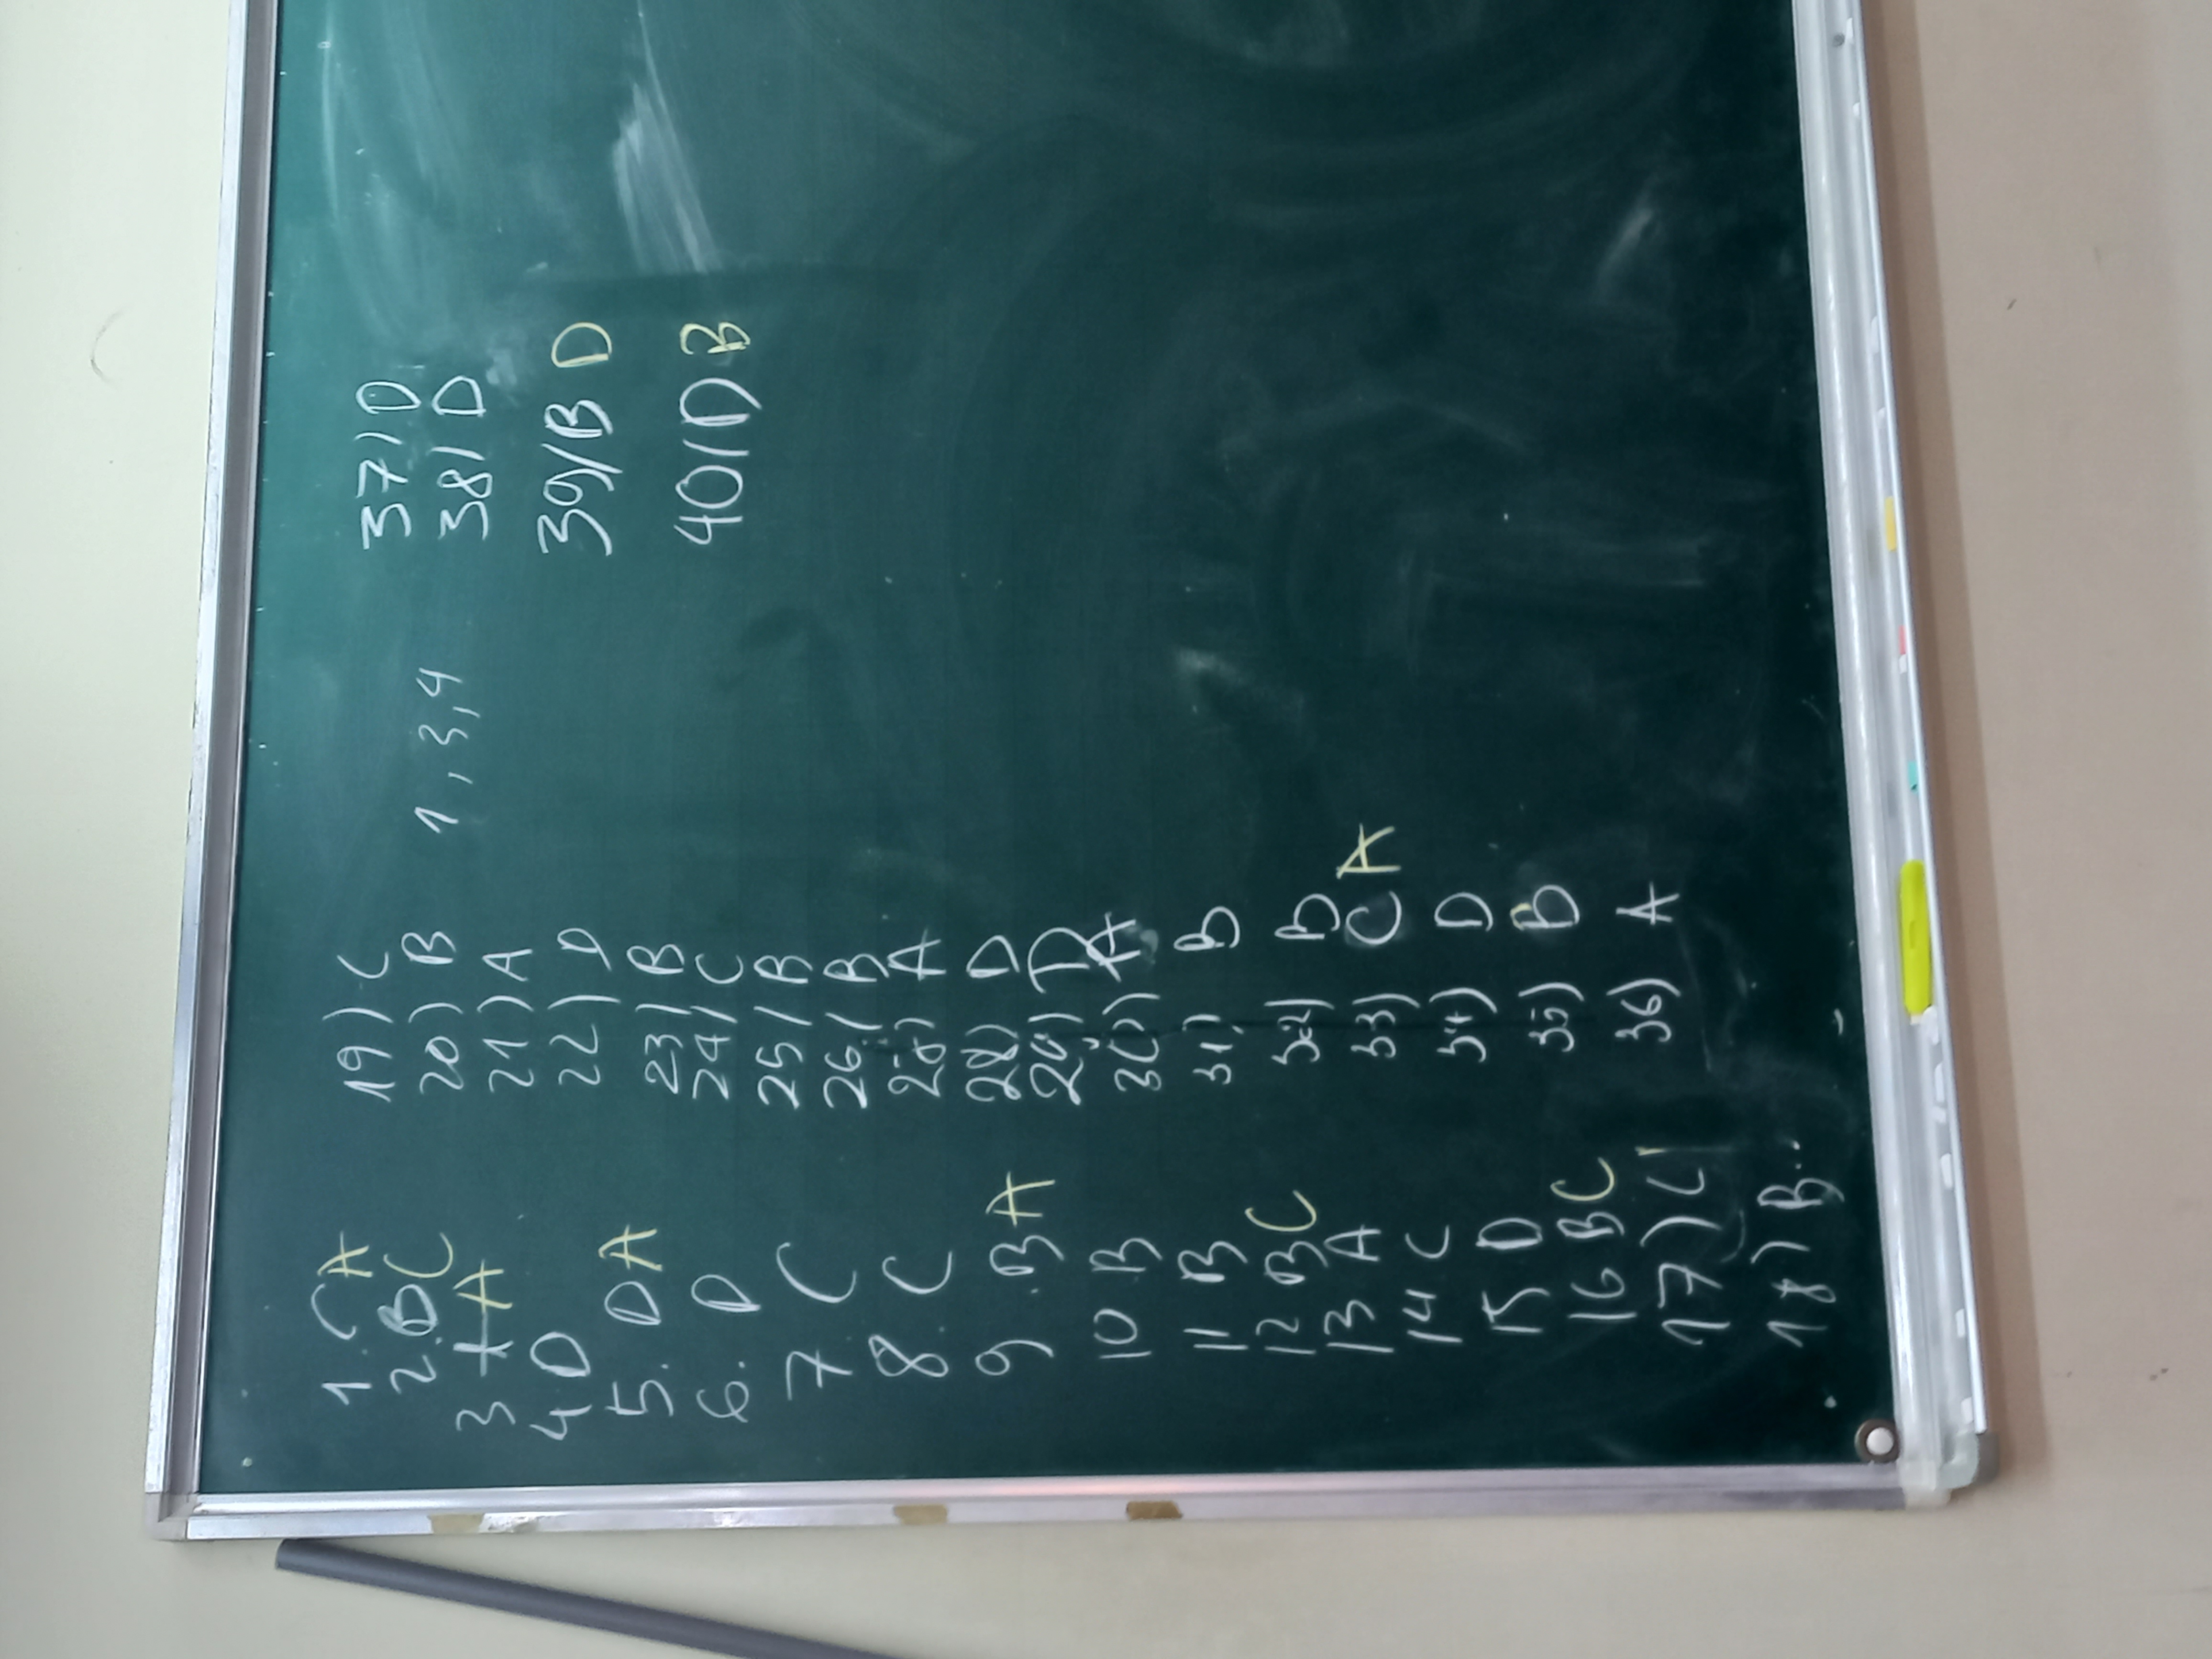 1. C A
2. B C
3 A
4 D
5. D A
6. D
7. C
8. C
9 . B A
10 B
11 B
12 B C
13 A
14 C
15 D
16 B C
17) C
18) B..
19) C
20) B 1, 3, 4
21) A
22) D
23) B
24/ C
25/ B
26./ B
A
28) D
29) D
30) A
31) B
32) B
33) C A
34) D
35) B
36) A
37) D
38) D
39/ B D
40/ D B